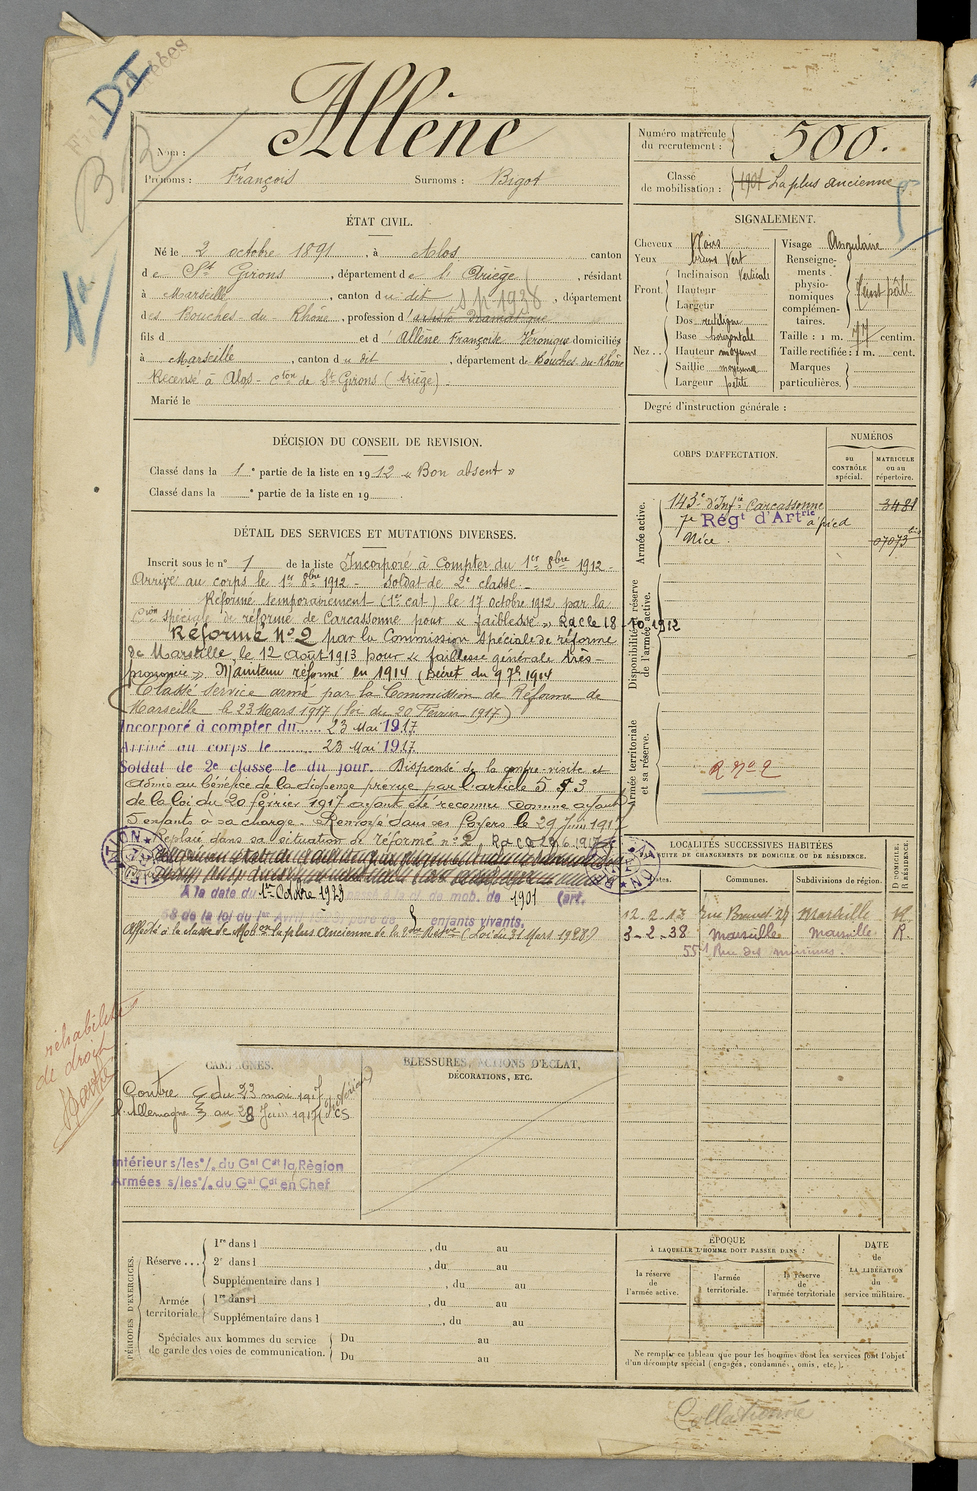 DI
Allène
Nom :
Prénoms : François Surnoms : Bigot
Numéro matricule du recrutement : 500.
Classe de mobilisation : La plus ancienne
ÉTAT CIVIL.
Né le 2 octobre 1891, à Alos canton
de St Girons, département de l'Ariège, résidant
à Marseille, canton du dit, département
des Bouches-du-Rhône, profession d'artiste Dramatique
fils d et d'Allène Françoise Véronique domiciliés
à Marseille, canton du dit, département de Bouches-du-Rhône
Recensé à Alos - cton de St Girons (Ariège).
Marié le
SIGNALEMENT.
Cheveux Noirs
Yeux Vert
Front. Inclinaison Verticale
Hauteur
Largeur
Nez... Dos rectiligne
Base horizontale
Hauteur moyenne
Saillie moyenne
Largeur petite
Visage Angulaire
Renseignements physionomiques complémentaires. Teint pâle
Taille : 1 m. 77 centim.
Taille rectifiée : 1 m. cent.
Marques particulières.
Degré d'instruction générale :
DÉCISION DU CONSEIL DE REVISION.
Classé dans la 1e partie de la liste en 1912 « Bon absent »
Classé dans la e partie de la liste en 19 .
CORPS D'AFFECTATION.
NUMÉROS
au CONTRÔLE spécial.
MATRICULE ou au répertoire.
Armée active.
143e d'Infie Carcassonne 3481
7e Régt d'Artrie à pied
Nice 07073 bis
Disponibilité et réserve de l'armée active.
Armée territoriale et sa réserve.
R no 2
DÉTAIL DES SERVICES ET MUTATIONS DIVERSES.
Inscrit sous le n° 1 de la liste Incorporé à Compter du 1er 8bre 1912 -
Arrivé au corps le 1er 8bre 1912 - Soldat de 2e classe.
Réformé temporairement (1re cat) le 17 octobre 1912 par la
Cion spéciale de réforme de Carcassonne pour « faiblesse » Rac le 18-10-1912
Réformé N°2 par la Commission Spéciale de réforme
de Marseille, le 12 Août 1913 pour « faiblesse générale très
prononcée ». Maintenu réformé en 1914 (Décret du 9 7bre 1914
Classé service armé par la Commission de Réforme de
Marseille le 23 Mars 1917 (loi du 20 Février 1917)
Incorporé à compter du 23 Mai 1917
Arrivé au corps le 23 Mai 1917
Soldat de 2e classe le du jour. Dispensé de la contre-visite et
admis au bénéfice de la dispense prévue par l'article 5 § 3
de la loi du 20 février 1917 ayant été reconnu comme ayant
5 enfants à sa charge. Renvoyé dans ses foyers le 29 Juin 1917
Replacé dans sa situation de réformé n° 2
A la date du 1er Octobre 1929 cl. de mob. de 1901 (art.
58 de la loi du 1er Avril père de 5 enfants vivants.
Affecté à la classe de Mob on la plus Ancienne de la 2me Resve (Loi du 31 Mars 1928)
LOCALITÉS SUCCESSIVES HABITÉES
PAR SUITE DE CHANGEMENTS DE DOMICILE OU DE RÉSIDENCE.
Dates.
Communes.
Subdivisions de région.
D DOMICILE.
R RÉSIDENCE.
12-2-13 Marseille R
3-2-38 Marseille Marseille R.
55 Rue des minimes.
réhabilité
de droit
CAMPAGNES.
Contre l'Allemagne du 23 mai 1917
au 28 Juin 1917 CS
Intérieur s/les o/. du Gal Cdt la Région
Armées s/les o/. du Gal Cdt en Chef
BLESSURES, ACTIONS D'ÉCLAT,
DÉCORATIONS, ETC.
PÉRIODES D'EXERCICES.
Réserve...
1re dans l , du au
2e dans l , du au
Supplémentaire dans l , du au
Armée territoriale.
1re dans l , du au
Supplémentaire dans l , du au
Spéciales aux hommes du service de garde des voies de communication.
Du au
Du au
ÉPOQUE
À LAQUELLE L'HOMME DOIT PASSER DANS :
la réserve de l'armée active.
l'armée territoriale.
la réserve de l'armée territoriale
DATE de LA LIBÉRATION du service militaire.
Ne remplir ce tableau que pour les hommes dont les services font l'objet
d'un décompte spécial (engagés, condamnés, omis, etc.).
Collationné